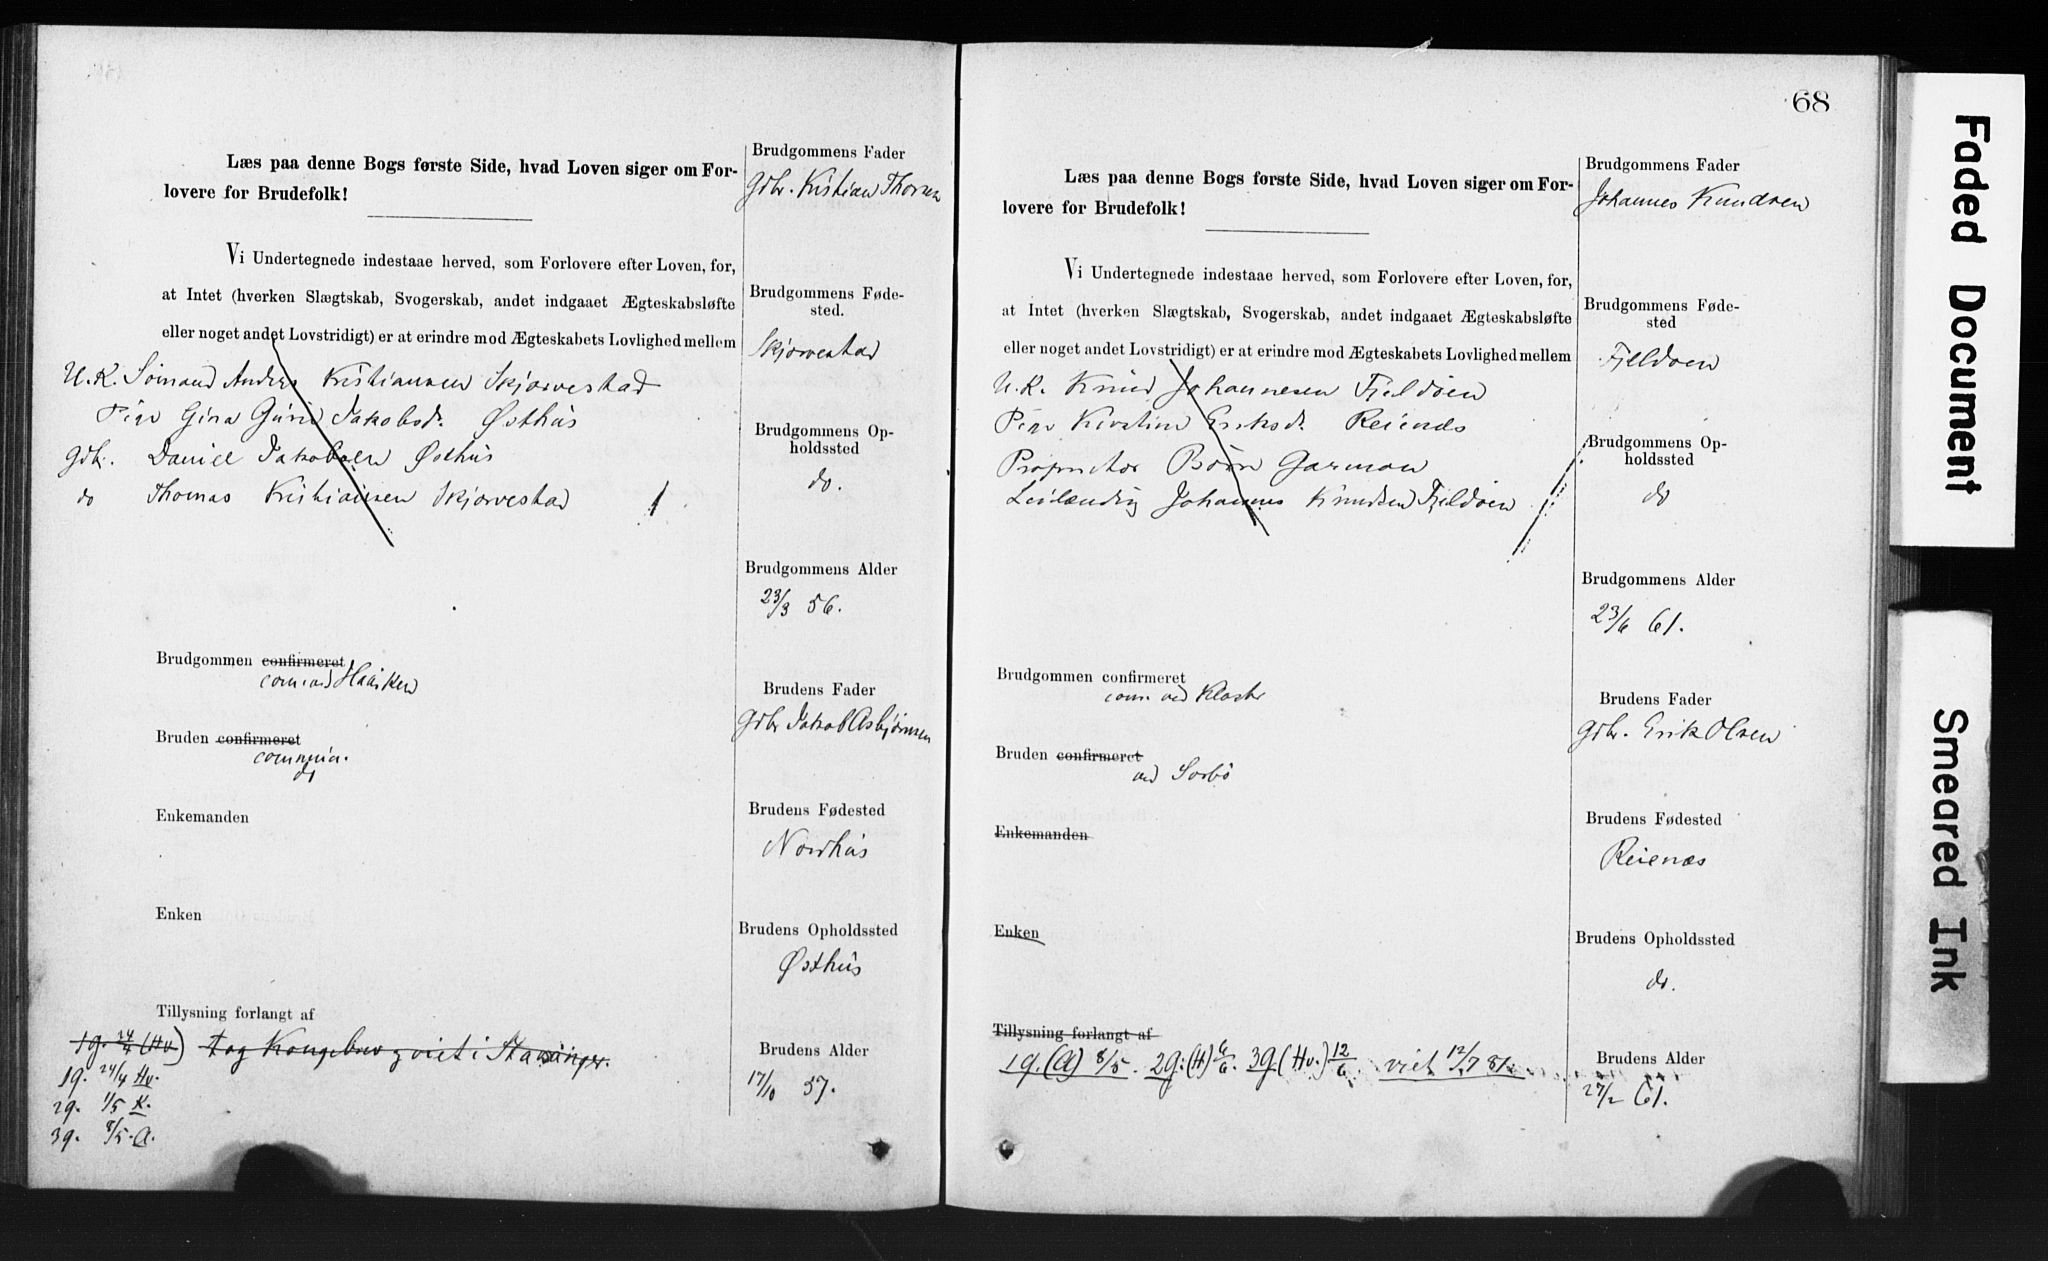 Læs paa denne Bogs første Side, hvad Loven siger om For-
lovere for Brudefolk!
Vi Undertegnede indestaae herved, som Forlovere efter Loven, for,
at Intet (hverken Slægtskab, Svogerskab, andet indgaaet Ægteskabsløfte
eller noget andet Lovstridigt) er at erindre mod Ægteskabets Lovlighed mellem
U.K. Sömand Anders Kristiansen Skjørvestad
Pige Gina Gurine Jakobsd. Østhus
Gdb. Daniel Jakobsen Østhus
do Thomas Kristiansen Skjørvestad
Brudgommen confirmeret
com. ved Hausken
Bruden confirmeret
commun.
do
Enkemanden
Enken
Tillysning forlangt af
1g. 24/4 (Hv) tog Kongebrev, viet i Stavanger.
1g. 24/4 Hv.
2g. 1/5 K.
3g. 8/5. A.
Brudgommens Fader
Gdbr. Kristian Thorsen
Brudgommens Føde-
sted.
Skjørvestad
Brudgommens Op-
holdssted
do.
Brudgommens Alder
23/3 56.
Brudens Fader
Gdbr Jakob Asbjørnsen
Brudens Fødested
Nordhus
Brudens Opholdssted
Østhus
Brudens Alder
17/10 57.
68
Læs paa denne Bogs første Side, hvad Loven siger om For-
lovere for Brudefolk!
Vi Undertegnede indestaae herved, som Forlovere efter Loven, for,
at Intet (hverken Slægtskab, Svogerskab, andet indgaaet Ægteskabsløfte
eller noget andet Lovstridigt) er at erindre mod Ægteskabets Lovlighed mellem
U.K. Knud Johannesen Fjeldøen
Pige Kirstine Eriksd. Reienæs
Proprietær Börre Garman
Leilænding Johannes Knudsen Fjeldøen
Brudgommen confirmeret
com. ved Kloster
Bruden confirmeret
ved Sörbö
Enkemanden
Enken
Tillysning forlangt af
1g. (A) 8/5. 2g. (H) 6/6. 3g (Hv.) 12/6. viet 12/7 81.
Brudgommens Fader
Johannes Knudsen
Brudgommens Føde-
sted
Fjeldøen
Brudgommens Op-
holdssted
do
Brudgommens Alder
23/6 61.
Brudens Fader
Gdbr. Erik Olsen
Brudens Fødested
Reienæs
Brudens Opholdssted
do.
Brudens Alder
27/2 61.
Faded Document
Smeared Ink